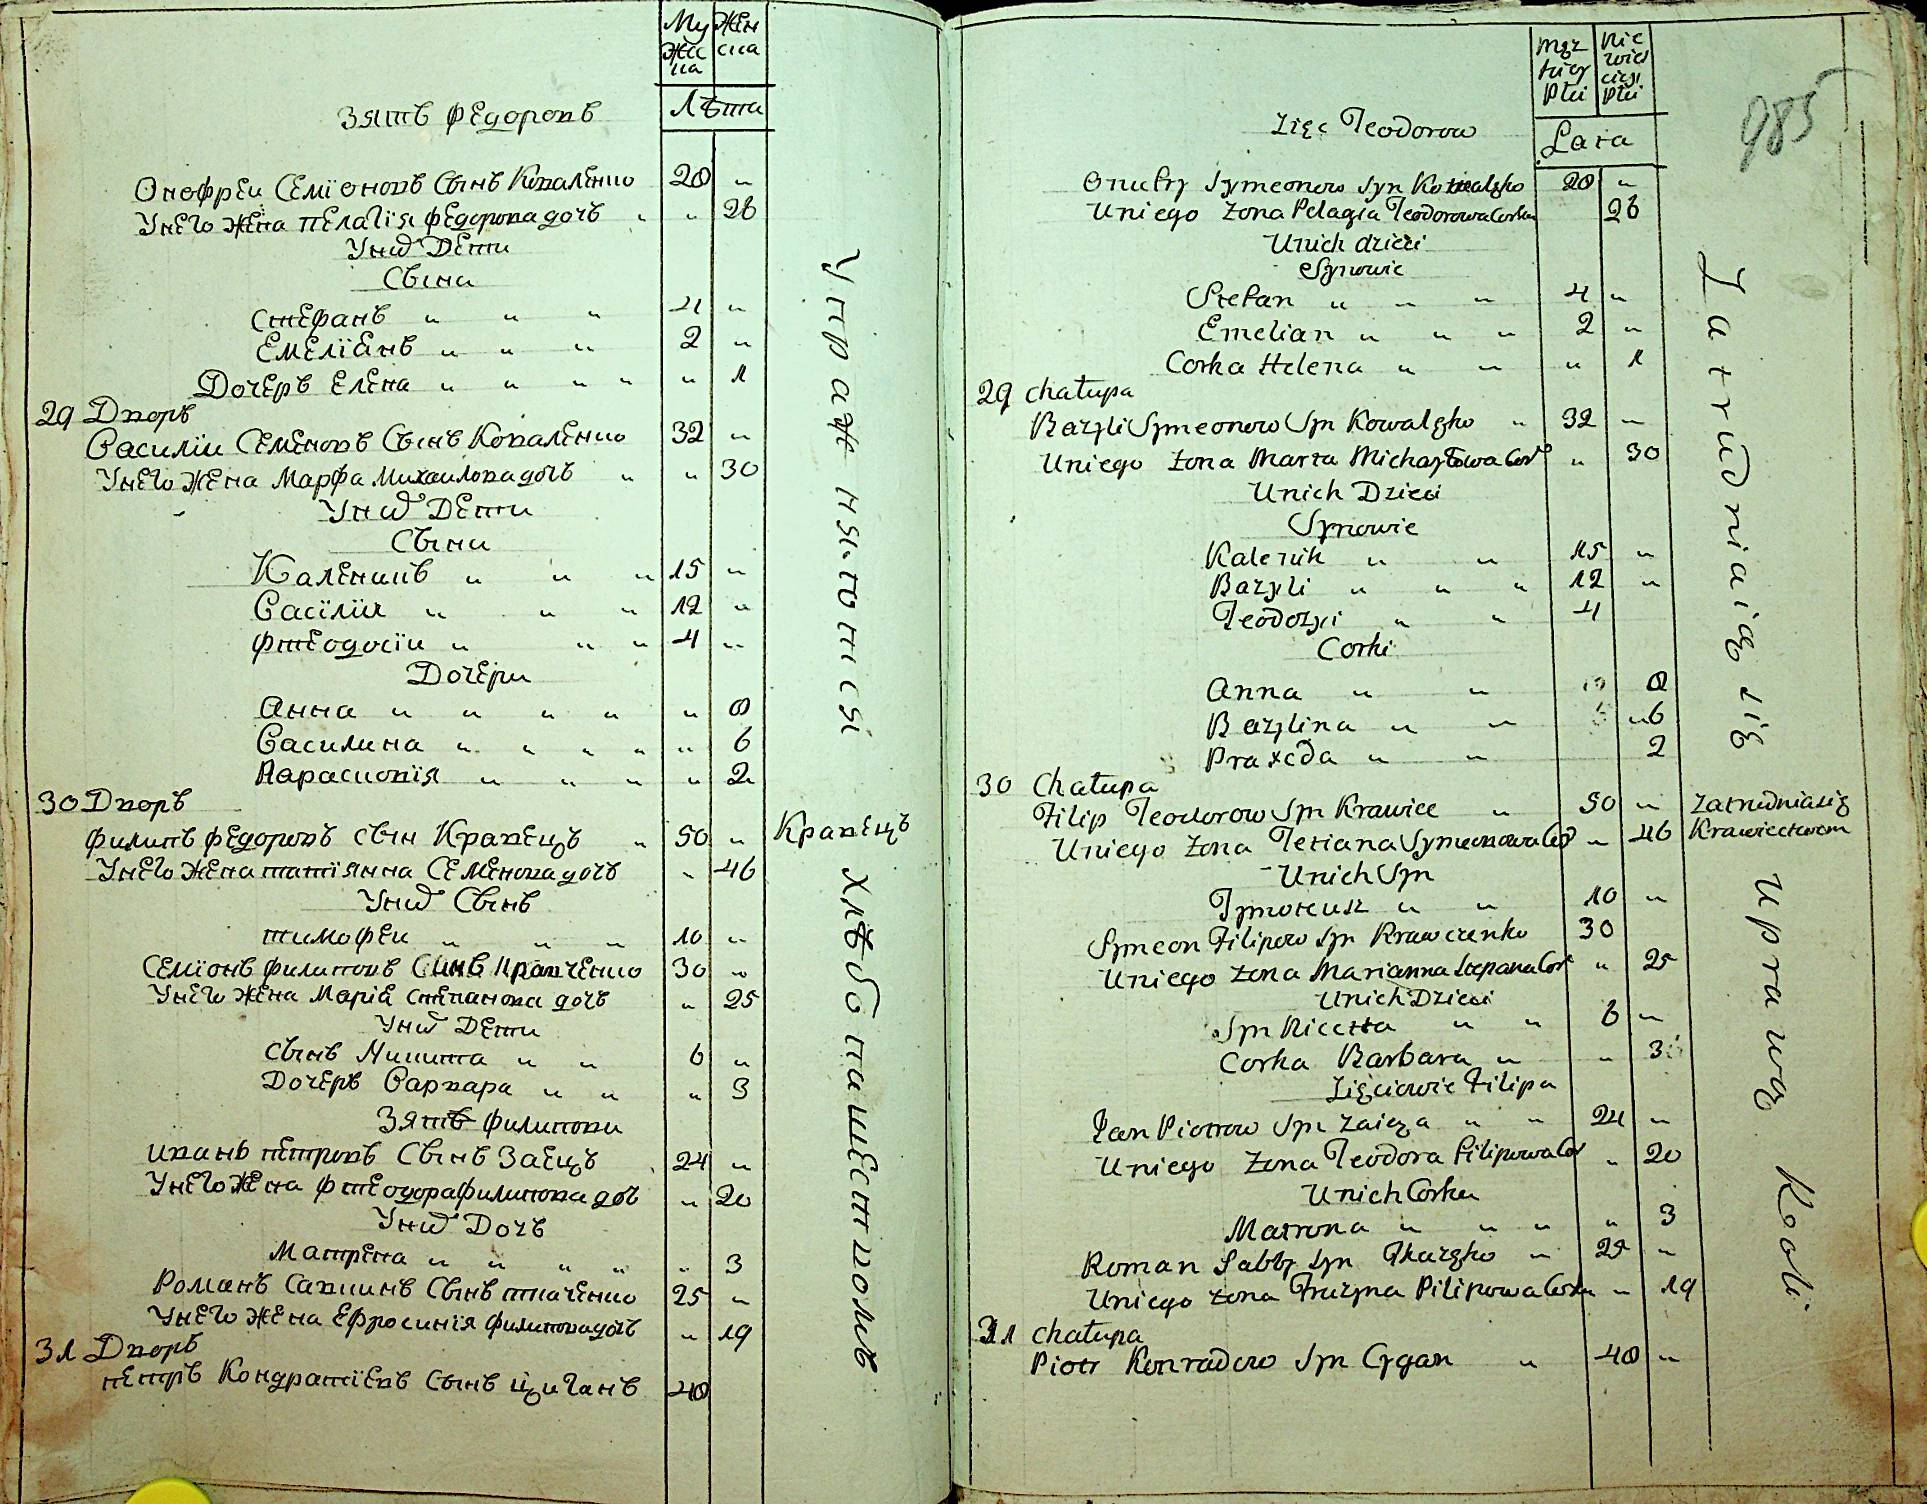 Му жес ка
Жен ска
Лѣта
Зятъ Федоровъ
Онофреи Семіоновъ Сынъ Коваленко 28 "
Унего жена Пелагія Федорова дочь " " 26
Уних Дети
Сыни
Стефанъ " " " 4 "
Емеліанъ " " " 2 "
Дочеръ Елена " " " " " 1
29 Дворъ
Василіи Семеновъ Сынъ Коваленко 32 "
Унего жена Марфа Михаилова дочь " " 30
Уних Дети
Сыни
Каленикъ " " " 15 "
Василіи " " " 12 "
Фтеодосіи " " " 4 "
Дочери
Анна " " " " " 8
Василина " " " " " 6
Парасковія " " " " 2
30 Дворъ
Филипъ Федоровъ сын Кравецъ " 50 " Кравецъ
Унего жена татіянна Семенова дочь " 46
Уних Сынъ
тимофеи " " " 10 "
Семіонъ Филиповъ Синъ Кравченко 30 "
Унего жена Маріа степанова дочь " 25
Уних Дети
Сынъ Микита " " 6 "
Дочеръ Варвара " " " 3
Зятъ Филипови
иванъ петровъ Сынъ Заецъ 24 "
Унего жена Фтеодора филипова доч " 20
Уних Дочъ
Матрена " " " " " 3
Романъ Савкинъ Сынъ ткаченко 25 "
Унего жена Ефросинія филипова дочь " 19
31 Дворъ
петръ Кондратіевъ Сынъ циганъ 48
Упражняются хлѣбопашествомъ
985
męz kiey Płci
Nie wies ciey Płci
Lata
Zięc Teodorow
Onufry Symeonow Syn Kowalzko 28 "
Uniego Zona Pelagia Teodorowa Corka 26
Unich dzieci
Synowie
Stefan " " " 4 "
Emelian " " " 2 "
Corka Helena " " " 1
29 chałupa
Bazyli Symeonow Syn Kowalzko " 32 "
Uniego Zona Marta Michayłowa Cor " 30
Unich Dzieci
Synowie
Kalenik " " 15 "
Bazyli " " " 12 "
Teodozyi " " 4
Corki
Anna " " 8
Bazylina " " " 6
Praxeda " " 2
30 Chałupa
Filip Teodorow Syn Krawiec " 50 " Zatrudnia się
Krawiectwem
Uniego Zona Tetiana Symeonowa Cor " 46
Unich Syn
Tymoteusz " " 10 "
Symeon Filipow Syn Krawczenko 30
Uniego Zona Marianna Stepana Cor " 25
Unich Dzieci
Syn Nicetta " " 6 "
Corka Barbara " " 3
Zięciowie Filipa
Jan Piotrow Syn Zaięza " " 24 "
Uniego Zona Teodora Filipowa Cor " 20
Unich Corka
Matrona " " " " 3
Roman Sabby Syn Tkaczko " 25 "
Uniego Zona Fruzyna Pilipowa Corka " 19
31 chałupa
Piotr Konradow Syn Cygan " 48 "
Zatrudniaią się uprawą Roli